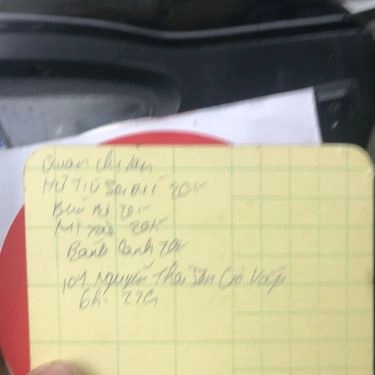 Quán chị Lan
Hủ Tiếu 20k
Bún 20k
Mì 20k
Bánh Canh 20k
101 Nguyễn Thái Sơn Gò Vấp
6h - 22h